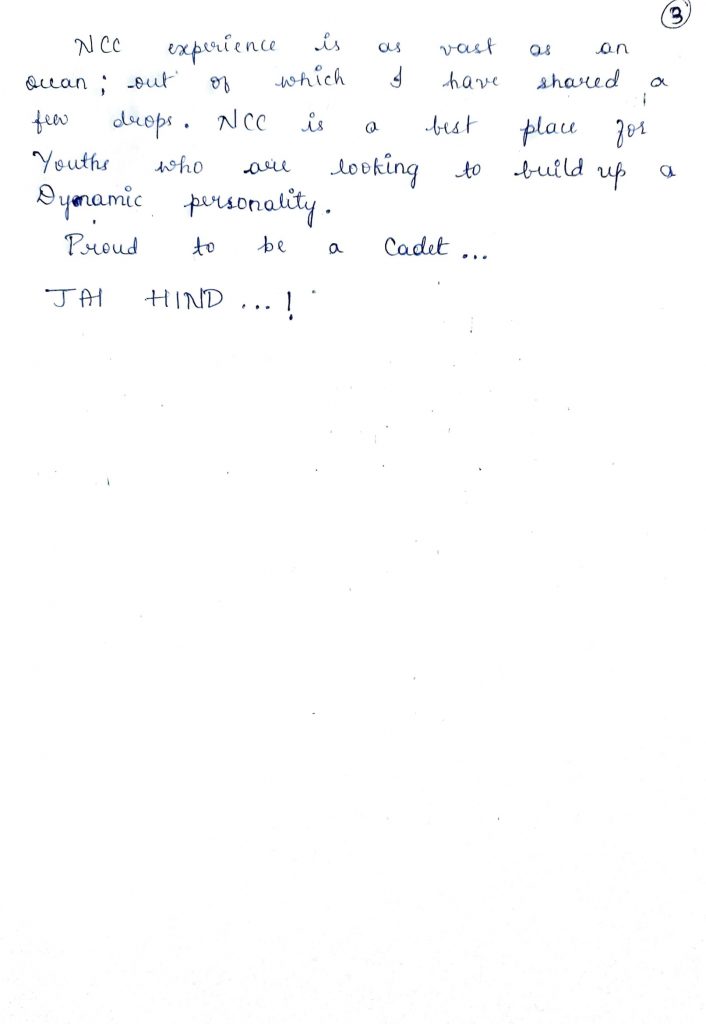 3
NCC experience is as vast as an
ocean; out of which I have shared a
few drops. NCC is a best place for
Youths who are looking to build up a
Dynamic personality.
Proud to be a Cadet...
JAI HIND ...!